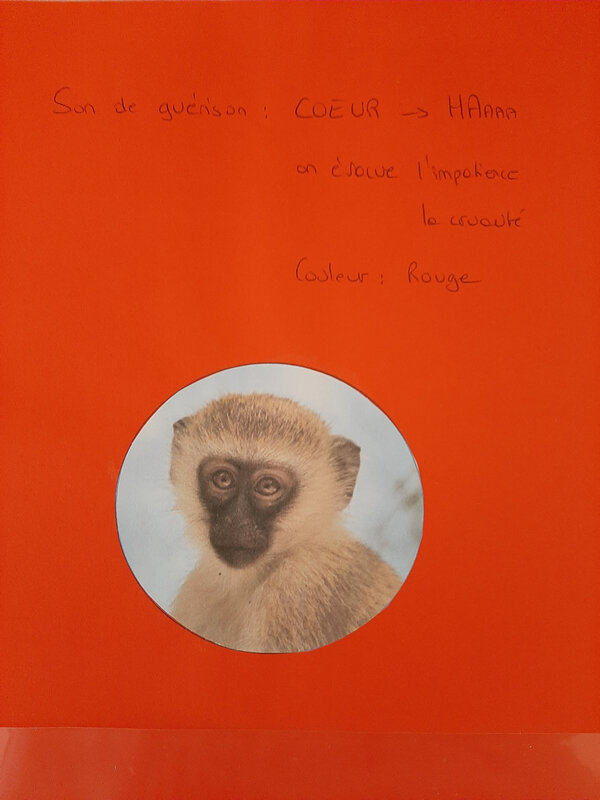 Son de guérison : COEUR -> HAAAA
on évacue l'impatience
la cruauté
Couleur : Rouge